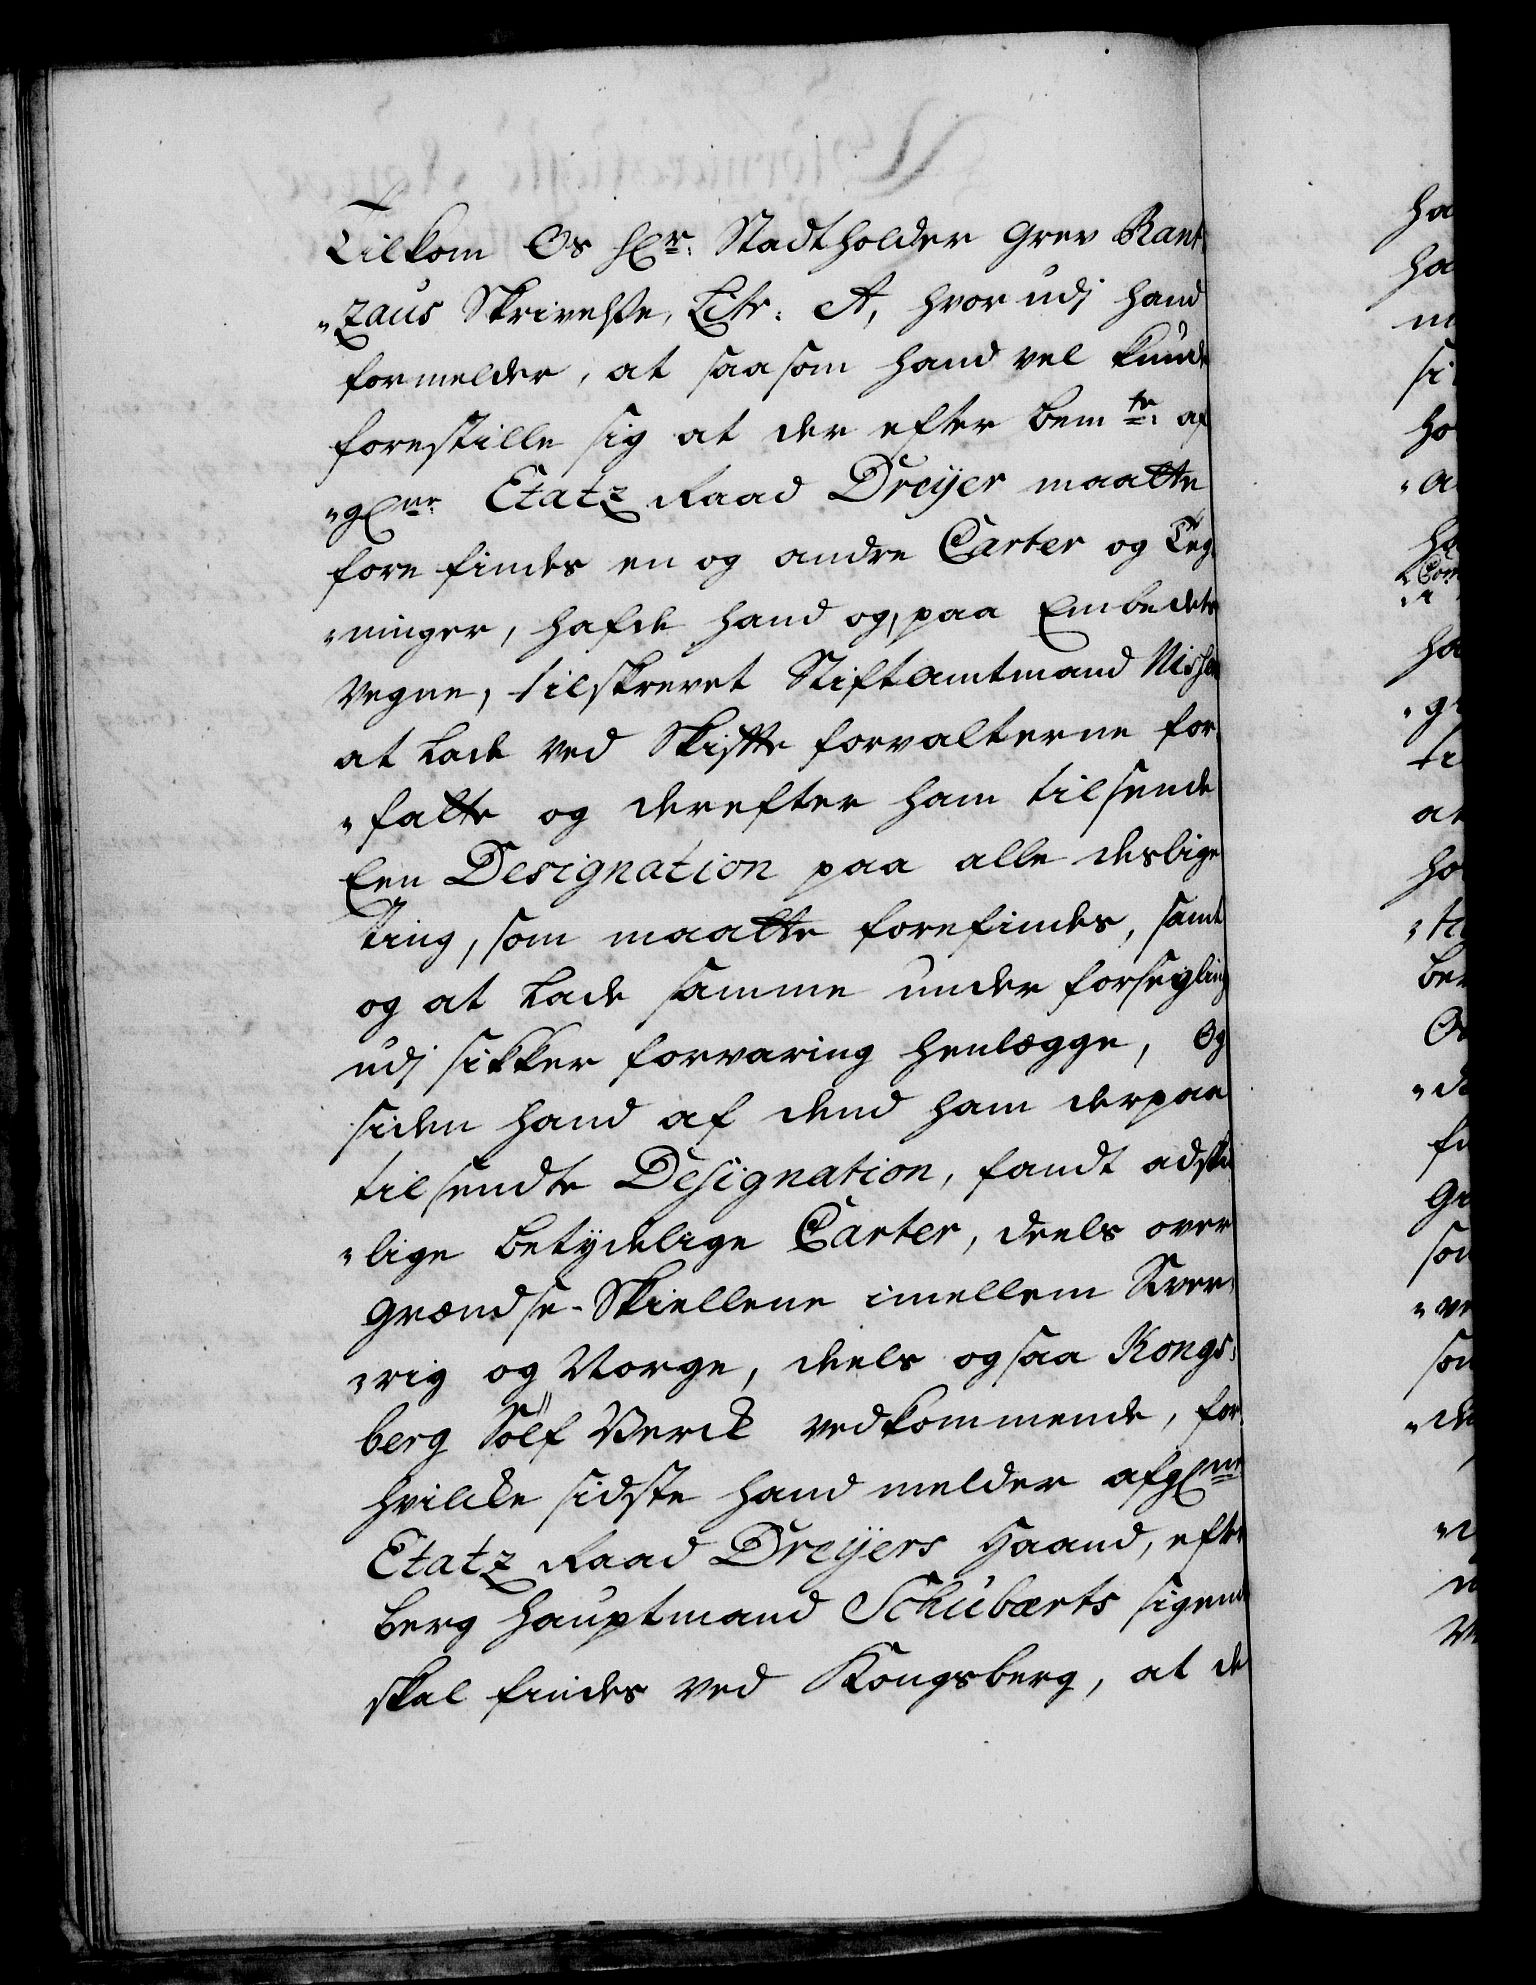 Tilkom Os hr: Stadtholder Grev Rant
"zaus Skrivelse, Litr: A, hvor udj hand
formelder, at saasom hand vel kunde
forestille sig at der efter bemte: af
"gne: Etatz Raad Dreÿer maatte
forefindes en og andre Carter og Teg
"ninger, hafde hand og, paa Embedets
Vegne, tilskrevet Stiftamtmand Nissen
at lade ved Skifte forvalterne for
"fatte og derefter ham tilsende
Een Designation paa alle deslige
Ting, som maatte forefindes, samt
og at lade samme under forsegling
udj sikker forvaring henlægge, Og
siden hand af dend ham derpaa
tilsendte Designation, fandt adskil
"lige betydelige Carter, deels over
Grændse-Skiellene imellem Sver
"rig og Norge, deels ogsaa Kongs:
berg Sölf Verck vedkommende, for
hvilcke sidste hand melder afgne
Etatz Raad Dreÿers Haand, efter
Berg Hauptmand Schubærts sigende
skal findes ved Kongsberg, at de